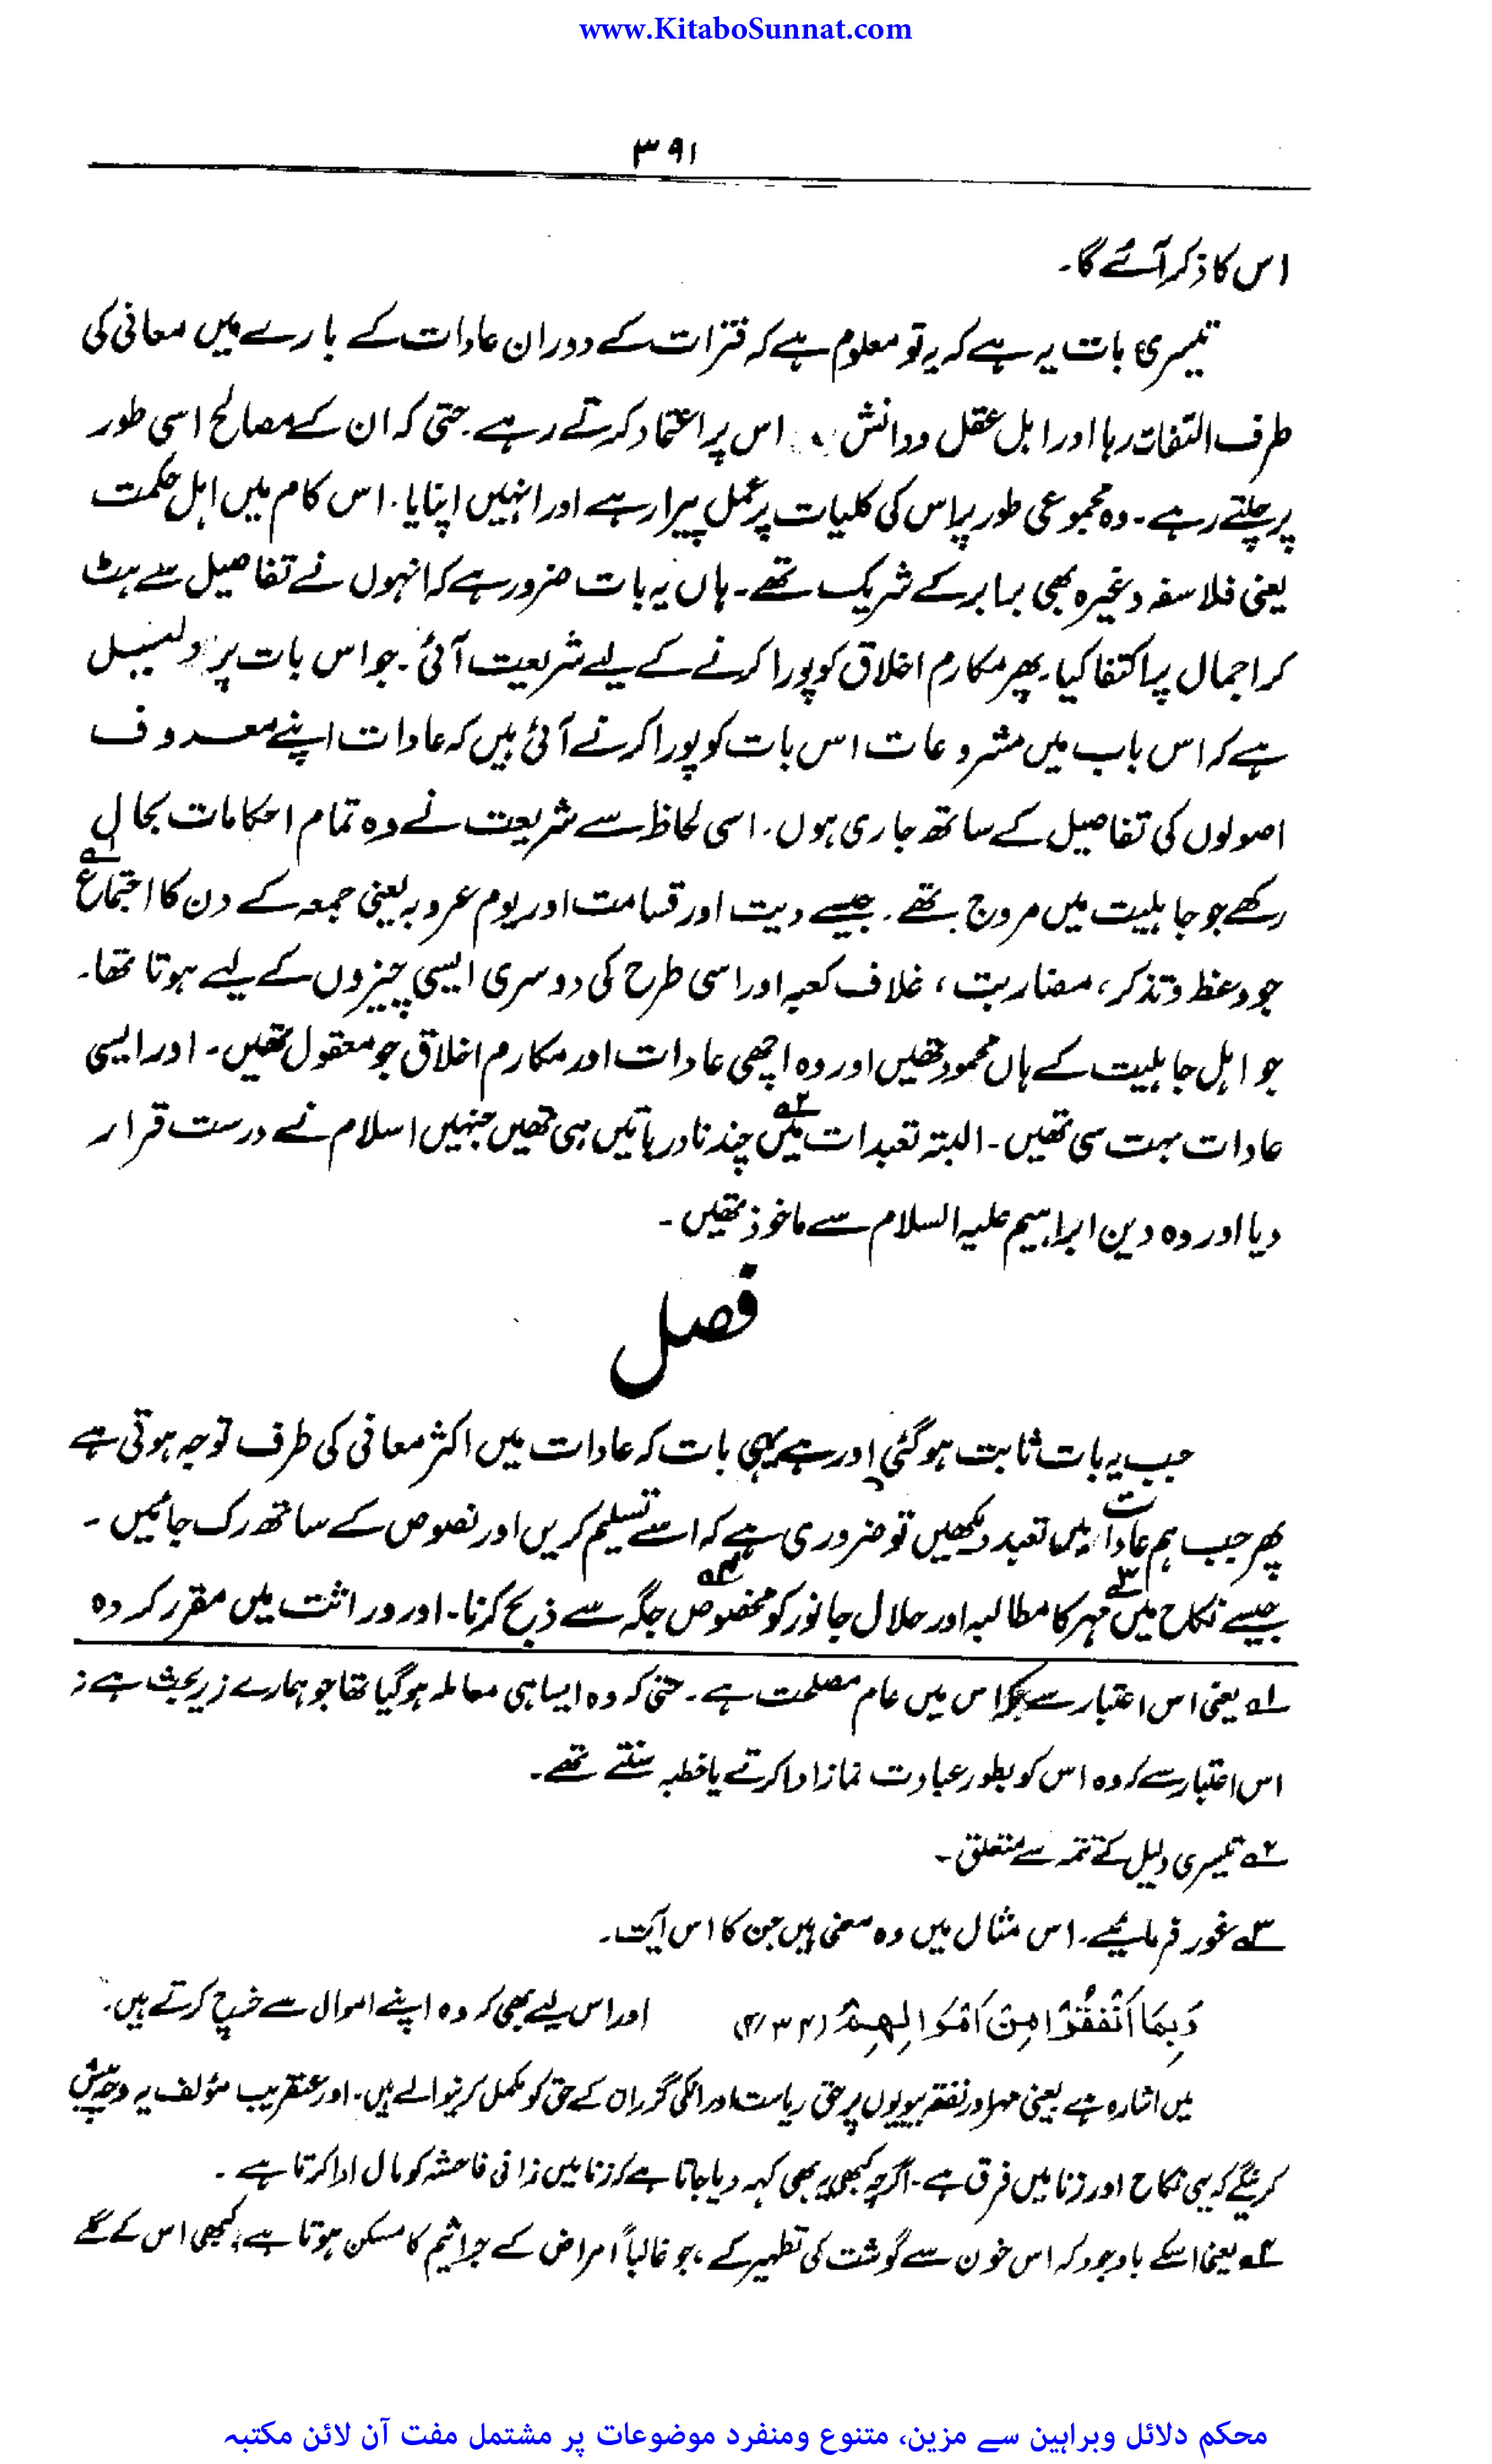 www.KitaboSunnat.com
۳۹۱
اس کا ذکر آئے گا۔
تیسری بات یہ ہے کہ یہ تو معلوم ہے کہ فترات کے دوران عادات کے بارے میں معانی کی
طرف التفات رہا اور اہل عقل و دانش اس پر اعتماد کرتے رہے۔ حتیٰ کہ ان کے مصالح اسی طور
پر چلتے رہے۔ وہ مجموعی طور پر اس کی کلیات پر عمل پیرا رہے اور انہیں اپنایا۔ اس کام میں اہل حکمت
یعنی فلاسفہ وغیرہ بھی برابر کے شریک تھے۔ ہاں یہ بات ضرور ہے کہ انہوں نے تفاصیل سے ہٹ
کر اجمال پر اکتفا کیا۔ پھر مکارم اخلاق کو پورا کرنے کے لیے شریعت آئی۔ جو اس بات پر دلیل
ہے کہ اس باب میں مشروعات اس بات کو پورا کرنے آئی ہیں کہ عادات اپنے معروف
اصولوں کی تفاصیل کے ساتھ جاری ہوں۔ اسی لحاظ سے شریعت نے وہ تمام احکامات بحال
رکھے جو جاہلیت میں مروج تھے۔ جیسے دیت اور قسامت اور یوم عروبہ یعنی جمعہ کے دن کا اجتماع ۱؎
جو وعظ و تذکر، مضاربت، غلاف کعبہ اور اسی طرح کی دوسری ایسی چیزوں کے لیے ہوتا تھا۔
جو اہل جاہلیت کے ہاں محمود تھیں اور وہ اچھی عادات اور مکارم اخلاق جو معقول تھیں۔ اور ایسی
عادات بہت سی تھیں۔ البتہ تعبدات میں ۲؎ چند نادر باتیں ہی تھیں جنہیں اسلام نے درست قرار
دیا اور وہ دین ابراہیم علیہ السلام سے ماخوذ تھیں۔
فصل
جب یہ بات ثابت ہوگئی اور ہے یہی بات کہ عادات میں اکثر معانی کی طرف توجہ ہوتی ہے
پھر جب ہم عادات میں تعبد دیکھیں تو ضروری ہے کہ اسے تسلیم کریں اور نصوص کے ساتھ رک جائیں۔
جیسے نکاح میں ۳؎ مہر کا مطالبہ اور حلال جانور کو مخصوص ۴؎ جگہ سے ذبح کرنا۔ اور وراثت میں مقرر کردہ
۱؎ یعنی اس اعتبار سے کہ اس میں عام مصلحت ہے۔ حتیٰ کہ وہ ایسا ہی معاملہ ہوگیا تھا جو ہمارے زیر بحث ہے نہ
اس اعتبار سے کہ وہ اس کو بطور عبادت نماز ادا کرتے یا خطبہ سنتے تھے۔
۲؎ تیسری دلیل کے تتمہ سے متعلق۔
۳؎ غور فرمائیے۔ اس مثال میں وہ معنی ہیں جن کا اس آیت۔
وَبِمَا اَنْفَقُوْا مِنْ اَمْوَالِهِمْ (۴/۳۴) اور اس لیے بھی کہ وہ اپنے اموال سے خرچ کرتے ہیں۔
میں اشارہ ہے یعنی مہر اور نفقہ بیویوں پر حق ریاست اور انکی گزران کے حق کو مکمل کرنیوالے ہیں۔ اور عنقریب مؤلف یہ وجہ پیش
کرینگے کہ یہی نکاح اور زنا میں فرق ہے۔ اگرچہ کبھی یہ بھی کہہ دیا جاتا ہے کہ زنا میں زانی فاحشہ کو مال ادا کرتا ہے۔
۴؎ یعنی اسکے باوجود کہ اس خون سے گوشت کی تطہیر کے، جو غالباً امراض کے جراثیم کا مسکن ہوتا ہے، کبھی اس کے گلے
محکم دلائل وبراہین سے مزین، متنوع ومنفرد موضوعات پر مشتمل مفت آن لائن مکتبہ